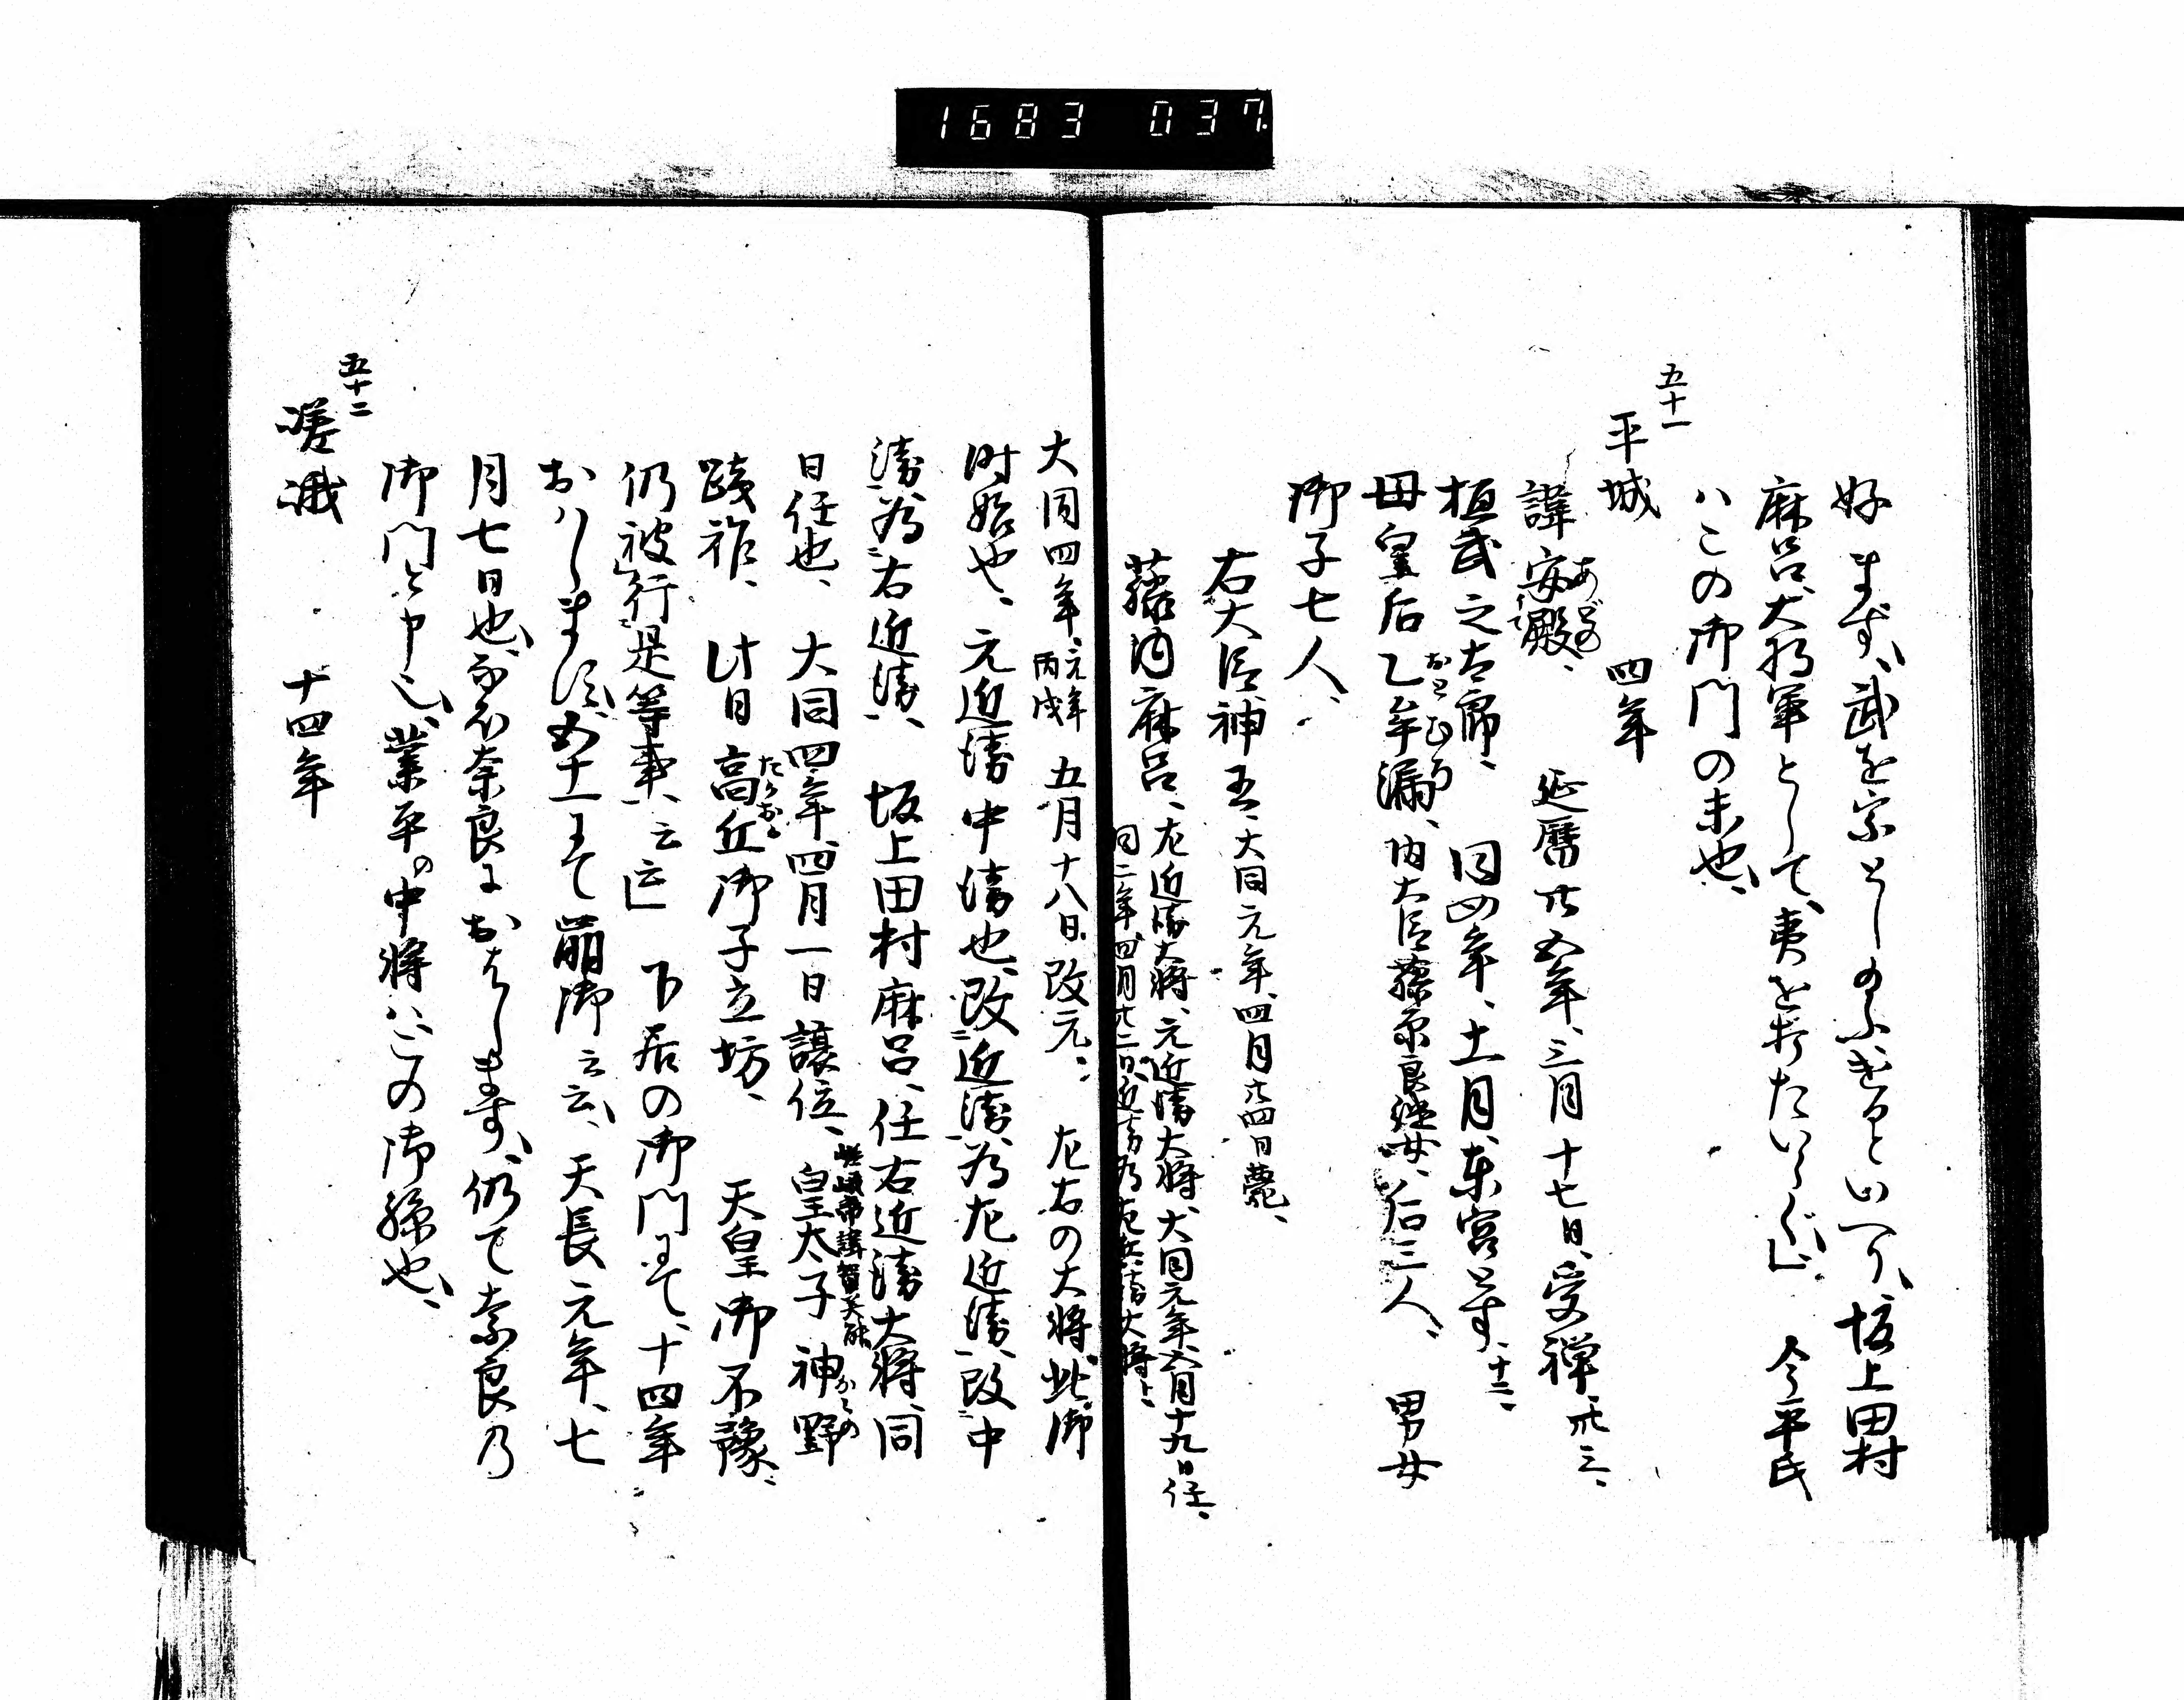 1683 037
好まず、武を宗としのふぎるといへり、坂上田村
麻呂、大将軍として、夷を打たいらぐ、今平氏
ハこの御門の末也、
五十一
平城 四年
諱安殿、 延暦廿五年、三月十七日、受禅、卅三、
あどの
桓武之太郎、 同四年、十一月、東宮とす、十二、
母皇后乙牟漏、内大臣藤原良継女、后三人、 男女
おとむろ
御子七人、
右大臣神王、大同元年、四月廿四日薨、
藤内麻呂、左近衛大将、元近衛大将、大同元年、五月十九日任、
同二年、四月廿二日、近衛為左近衛大将、
大同四年、元年丙戌 五月十八日、改元、 左右の大将、此御
時始也、元近衛中衛也、改近衛、為左近衛、改中
衛、為右近衛、 坂上田村麻呂、任右近衛大将、同
日任也、 大同四年、四月一日譲位、 皇太子神野
嵯峨帝諱賀美能
かみの
践祚、 此日高丘御子立坊、 天皇御不豫、
たかおか
仍被行是等事、云云 下居の御門にて、十四年
おハしまし、五十一にて崩御云云、天長元年、七
月七日也、なを奈良におはします、仍て奈良乃
御門と申也、業平の中将ハこの御孫也、
五十二
嵯峨 十四年